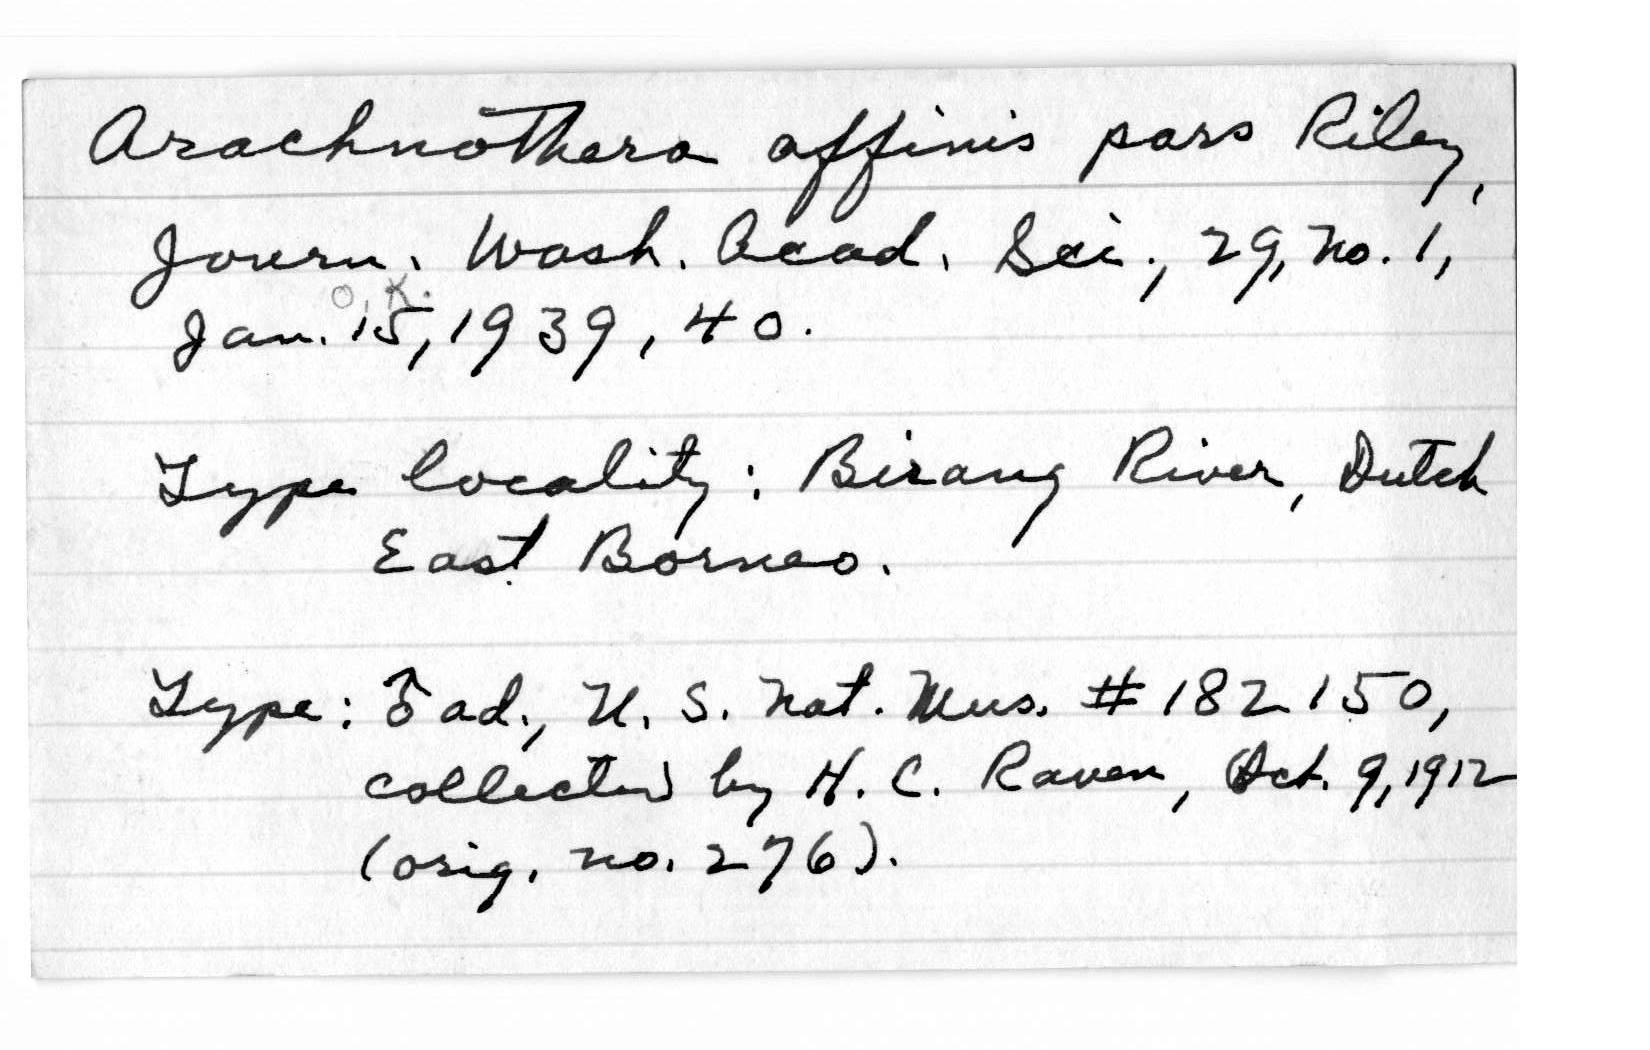 Arachnothera affinis pars Riley,
Journ. Wash. Acad. Sci., 29, no. 1,
O.K.
Jan. 15, 1939, 40.
Type locality: Birang River, Dutch
East Borneo.
Type: ♂ ad., U. S. Nat. Mus. # 182150,
collected by H. C. Raven, Oct. 9, 1912
(orig. no. 276).